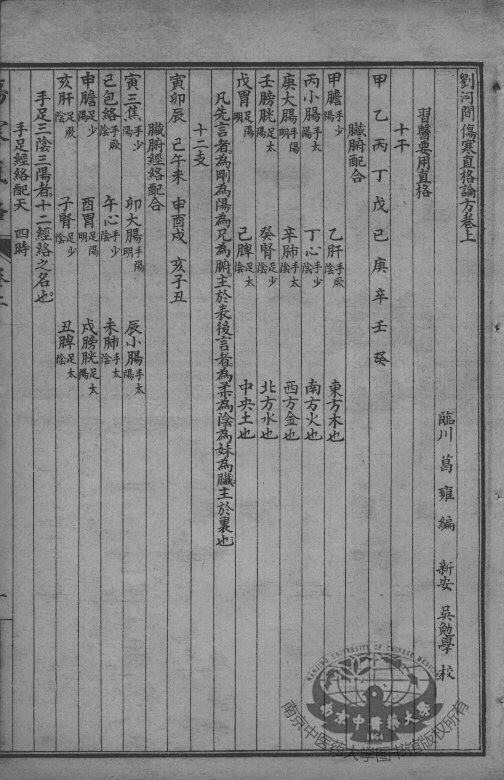 劉河間傷寒直格論方卷上
臨川 葛雍 編 新安 吳勉學 校
習醫要用直格
十干
甲 乙 丙 丁 戊 己 庚 辛 壬 癸
臟腑配合
甲膽足少陽 乙肝足厥陰 東方木也
丙小腸手太陽 丁心手少陰 南方火也
庚大腸手陽明 辛肺手太陰 西方金也
壬膀胱足太陽 癸腎足少陰 北方水也
戊胃足陽明 己脾足太陰 中央土也
凡先言者為剛為陽為兄為腑主於表後言者為柔為陰為妹為臟主於裏也
十二支
寅卯辰 巳午未 申酉戌 亥子丑
臟腑經絡配合
寅三焦手少陽 卯大腸手陽明 辰小腸手太陽
巳包絡手厥陰 午心手少陰 未肺手太陰
申膽足少陽 酉胃足陽明 戌膀胱足太陽
亥肝足厥陰 子腎足少陰 丑脾足太陰
手足三陰三陽者。十二經絡之名也。
手足經絡配天 四時
南京中醫藥大學
NANJING UNIVERSITY OF CHINESE MEDICINE
1954
南京中医药大学图书馆版权所有